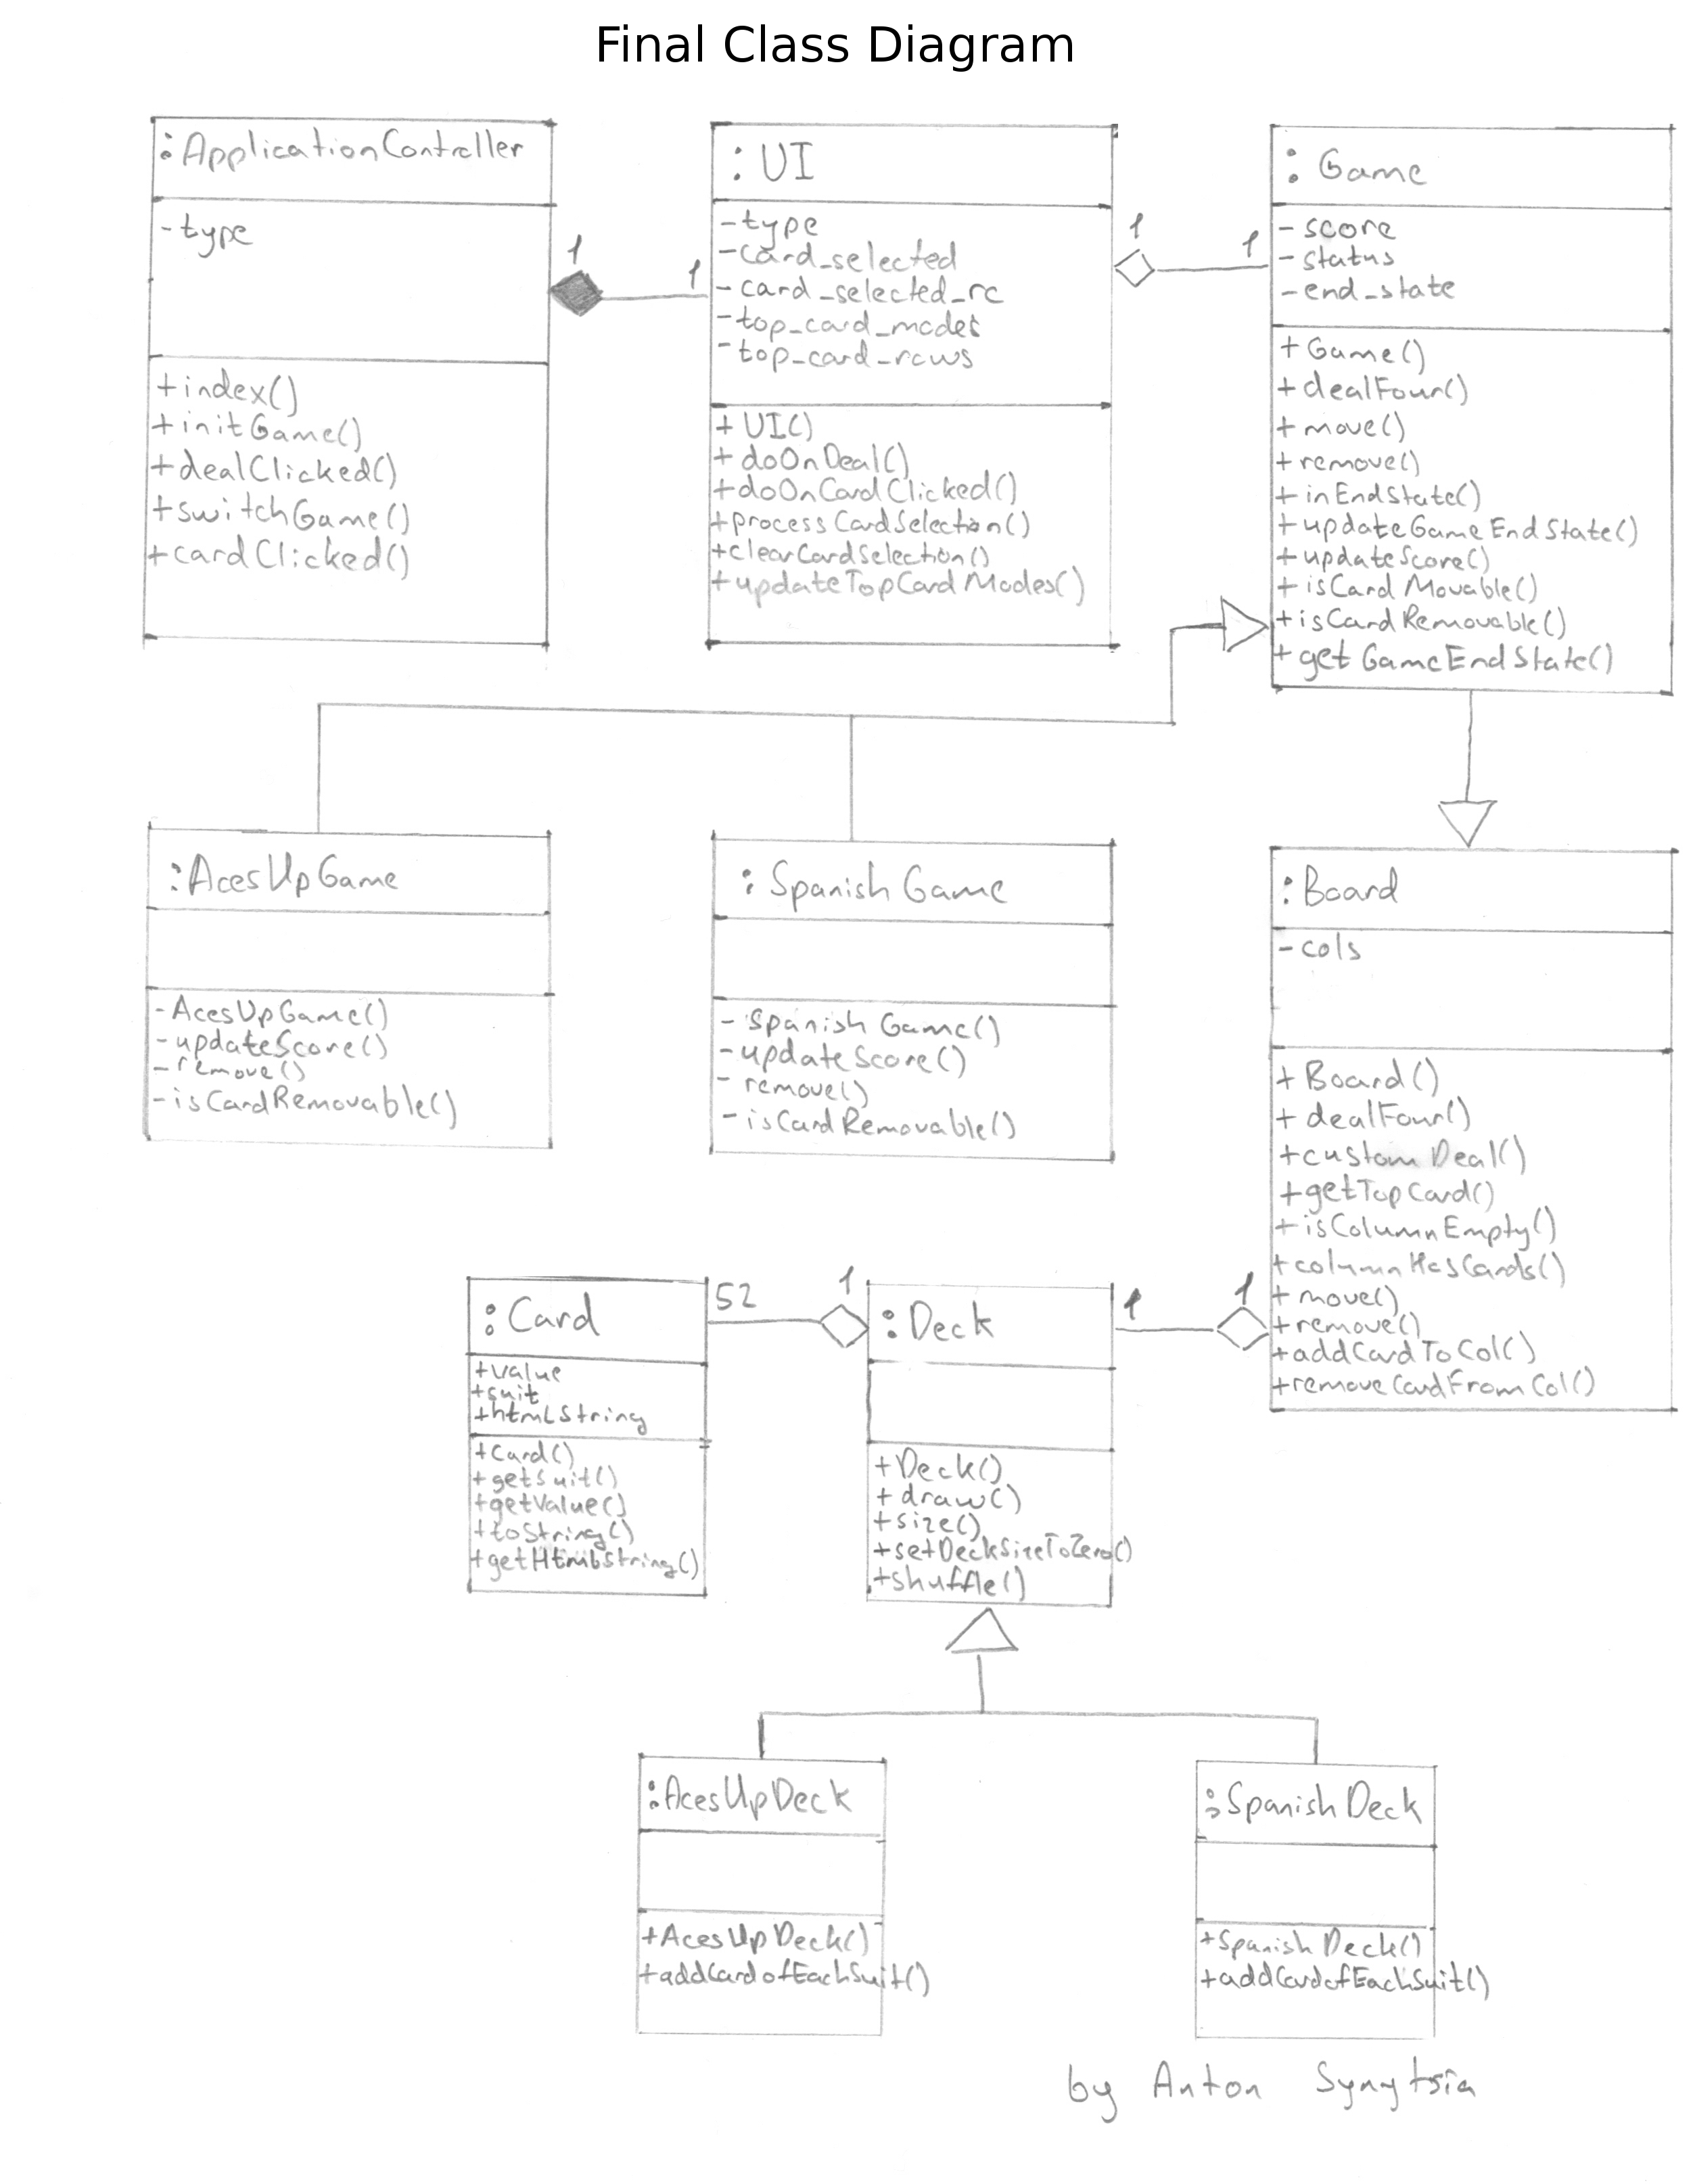 Final Class Diagram
:ApplicationController
-type
+index()
+initGame()
+dealClicked()
+switchGame()
+cardClicked()
1
1
:UI
-type
-card_selected
-card_selected_rc
-top_card_modes
-top_card_rows
+UI()
+doOnDeal()
+doOnCardClicked()
+processCardSelection()
+clearCardSelection()
+updateTopCardModes()
1
1
:Game
-score
-status
-end_state
+Game()
+dealFour()
+move()
+remove()
+inEndState()
+updateGameEndState()
+updateScore()
+isCardMovable()
+isCardRemovable()
+getGameEndState()
:AcesUpGame
-AcesUpGame()
-updateScore()
-remove()
-isCardRemovable()
:SpanishGame
-SpanishGame()
-updateScore()
-remove()
-isCardRemovable()
:Board
-cols
+Board()
+dealFour()
+customDeal()
+getTopCard()
+isColumnEmpty()
+columnHasCards()
+move()
+remove()
+addCardToCol()
+removeCardFromCol()
:Card
+value
+suit
+htmlString
+Card()
+getSuit()
+getValue()
+toString()
+getHtmlString()
52
1
:Deck
+Deck()
+draw()
+size()
+setDeckSizeToZero()
+shuffle()
1
1
:AcesUpDeck
+AcesUpDeck()
+addCardofEachSuit()
:SpanishDeck
+SpanishDeck()
+addCardofEachSuit()
by Anton Synytsia